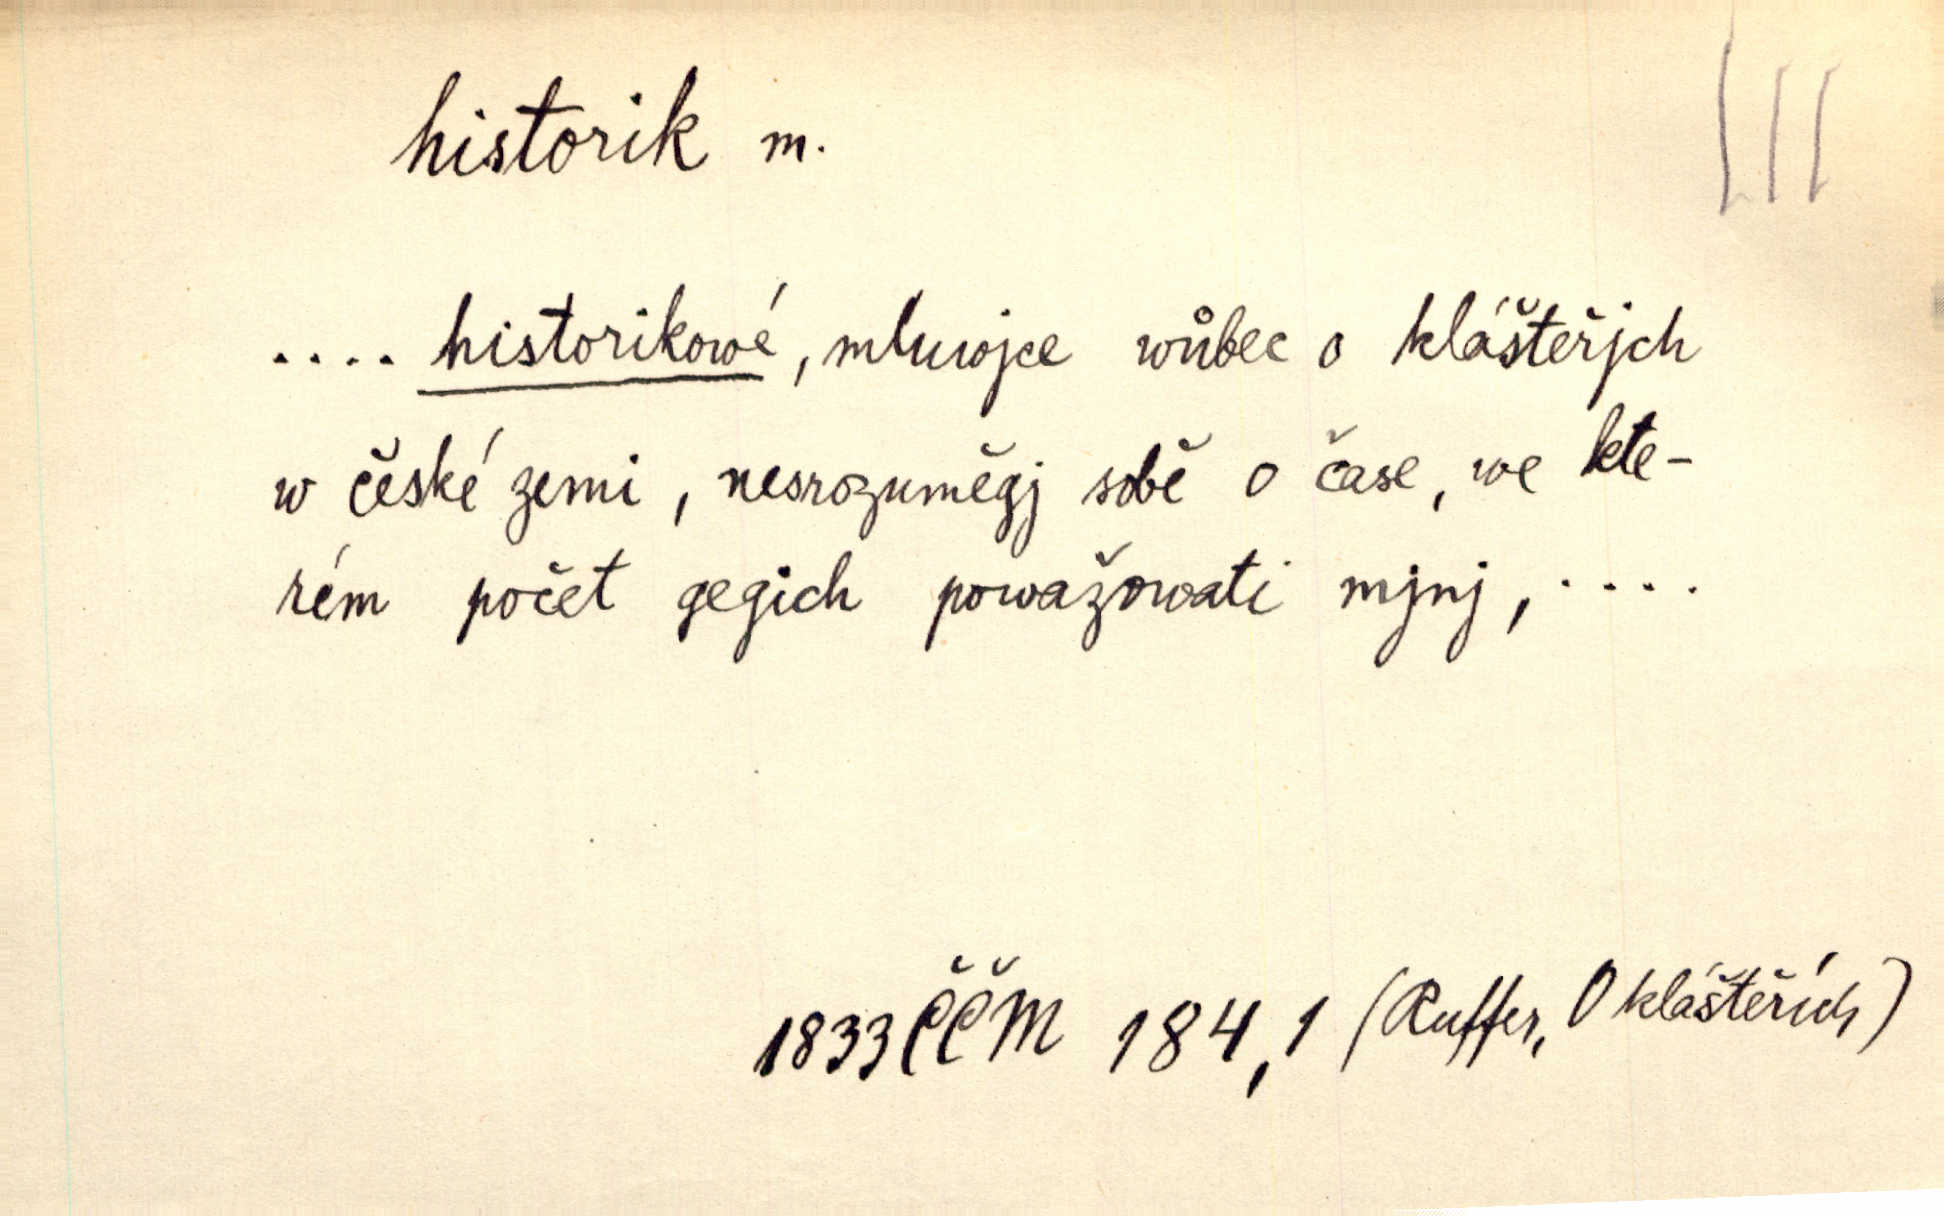 historik m.
.... historikowé, mluwjce wůbec o klášteřjch
w české zemi, nesrozuměgj sobě o čase, we kte-
rém počet gegich powažowati mjnj, ....
1833 ČČM 184,1 (Ruffer, O klášteřích)